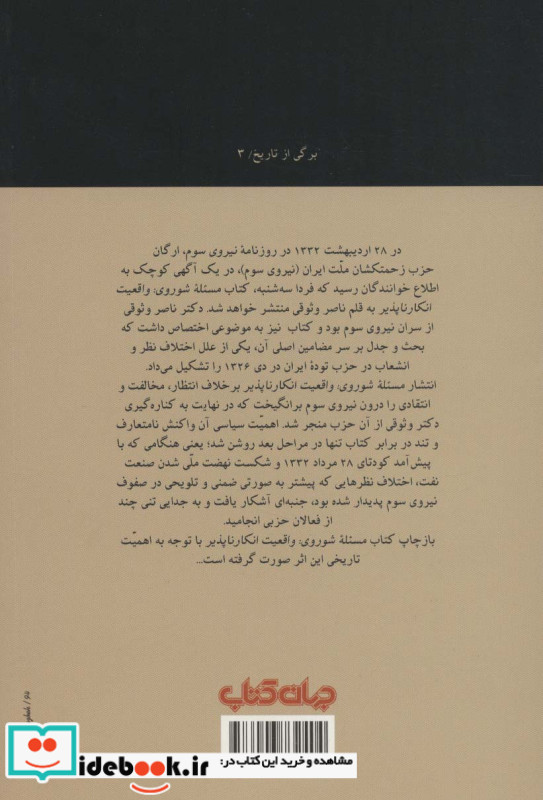 برگی از تاریخ/ ۳
در ۲۸ اردیبهشت ۱۳۳۲ در روزنامهٔ نیروی سوم، ارگان
حزب زحمتکشان ملّت ایران (نیروی سوم)، در یک آگهی کوچک به
اطلاع خوانندگان رسید که فردا سه‌شنبه، کتاب مسئلهٔ شوروی: واقعیت
انکارناپذیر به قلم ناصر وثوقی منتشر خواهد شد. دکتر ناصر وثوقی
از سران نیروی سوم بود و کتاب نیز به موضوعی اختصاص داشت که
بحث و جدل بر سر مضامین اصلی آن، یکی از علل اختلاف نظر و
انشعاب در حزب تودهٔ ایران در دی ۱۳۲۶ را تشکیل می‌داد.
انتشار مسئلهٔ شوروی: واقعیت انکارناپذیر برخلاف انتظار، مخالفت و
انتقادی را درون نیروی سوم برانگیخت که در نهایت به کناره‌گیری
دکتر وثوقی از آن حزب منجر شد. اهمیّت سیاسی آن واکنش نامتعارف
و تند در برابر کتاب تنها در مراحل بعد روشن شد؛ یعنی هنگامی که با
پیش‌آمد کودتای ۲۸ مرداد ۱۳۳۲ و شکست نهضت ملّی شدن صنعت
نفت، اختلاف نظرهایی که پیشتر به صورتی ضمنی و تلویحی در صفوف
نیروی سوم پدیدار شده بود، جنبه‌ای آشکار یافت و به جدایی تنی چند
از فعالان حزبی انجامید.
بازچاپ کتاب مسئلهٔ شوروی: واقعیت انکارناپذیر با توجه به اهمیّت
تاریخی این اثر صورت گرفته است...
جهان کتاب
مشاهده و خرید این کتاب در:
idebook.ir